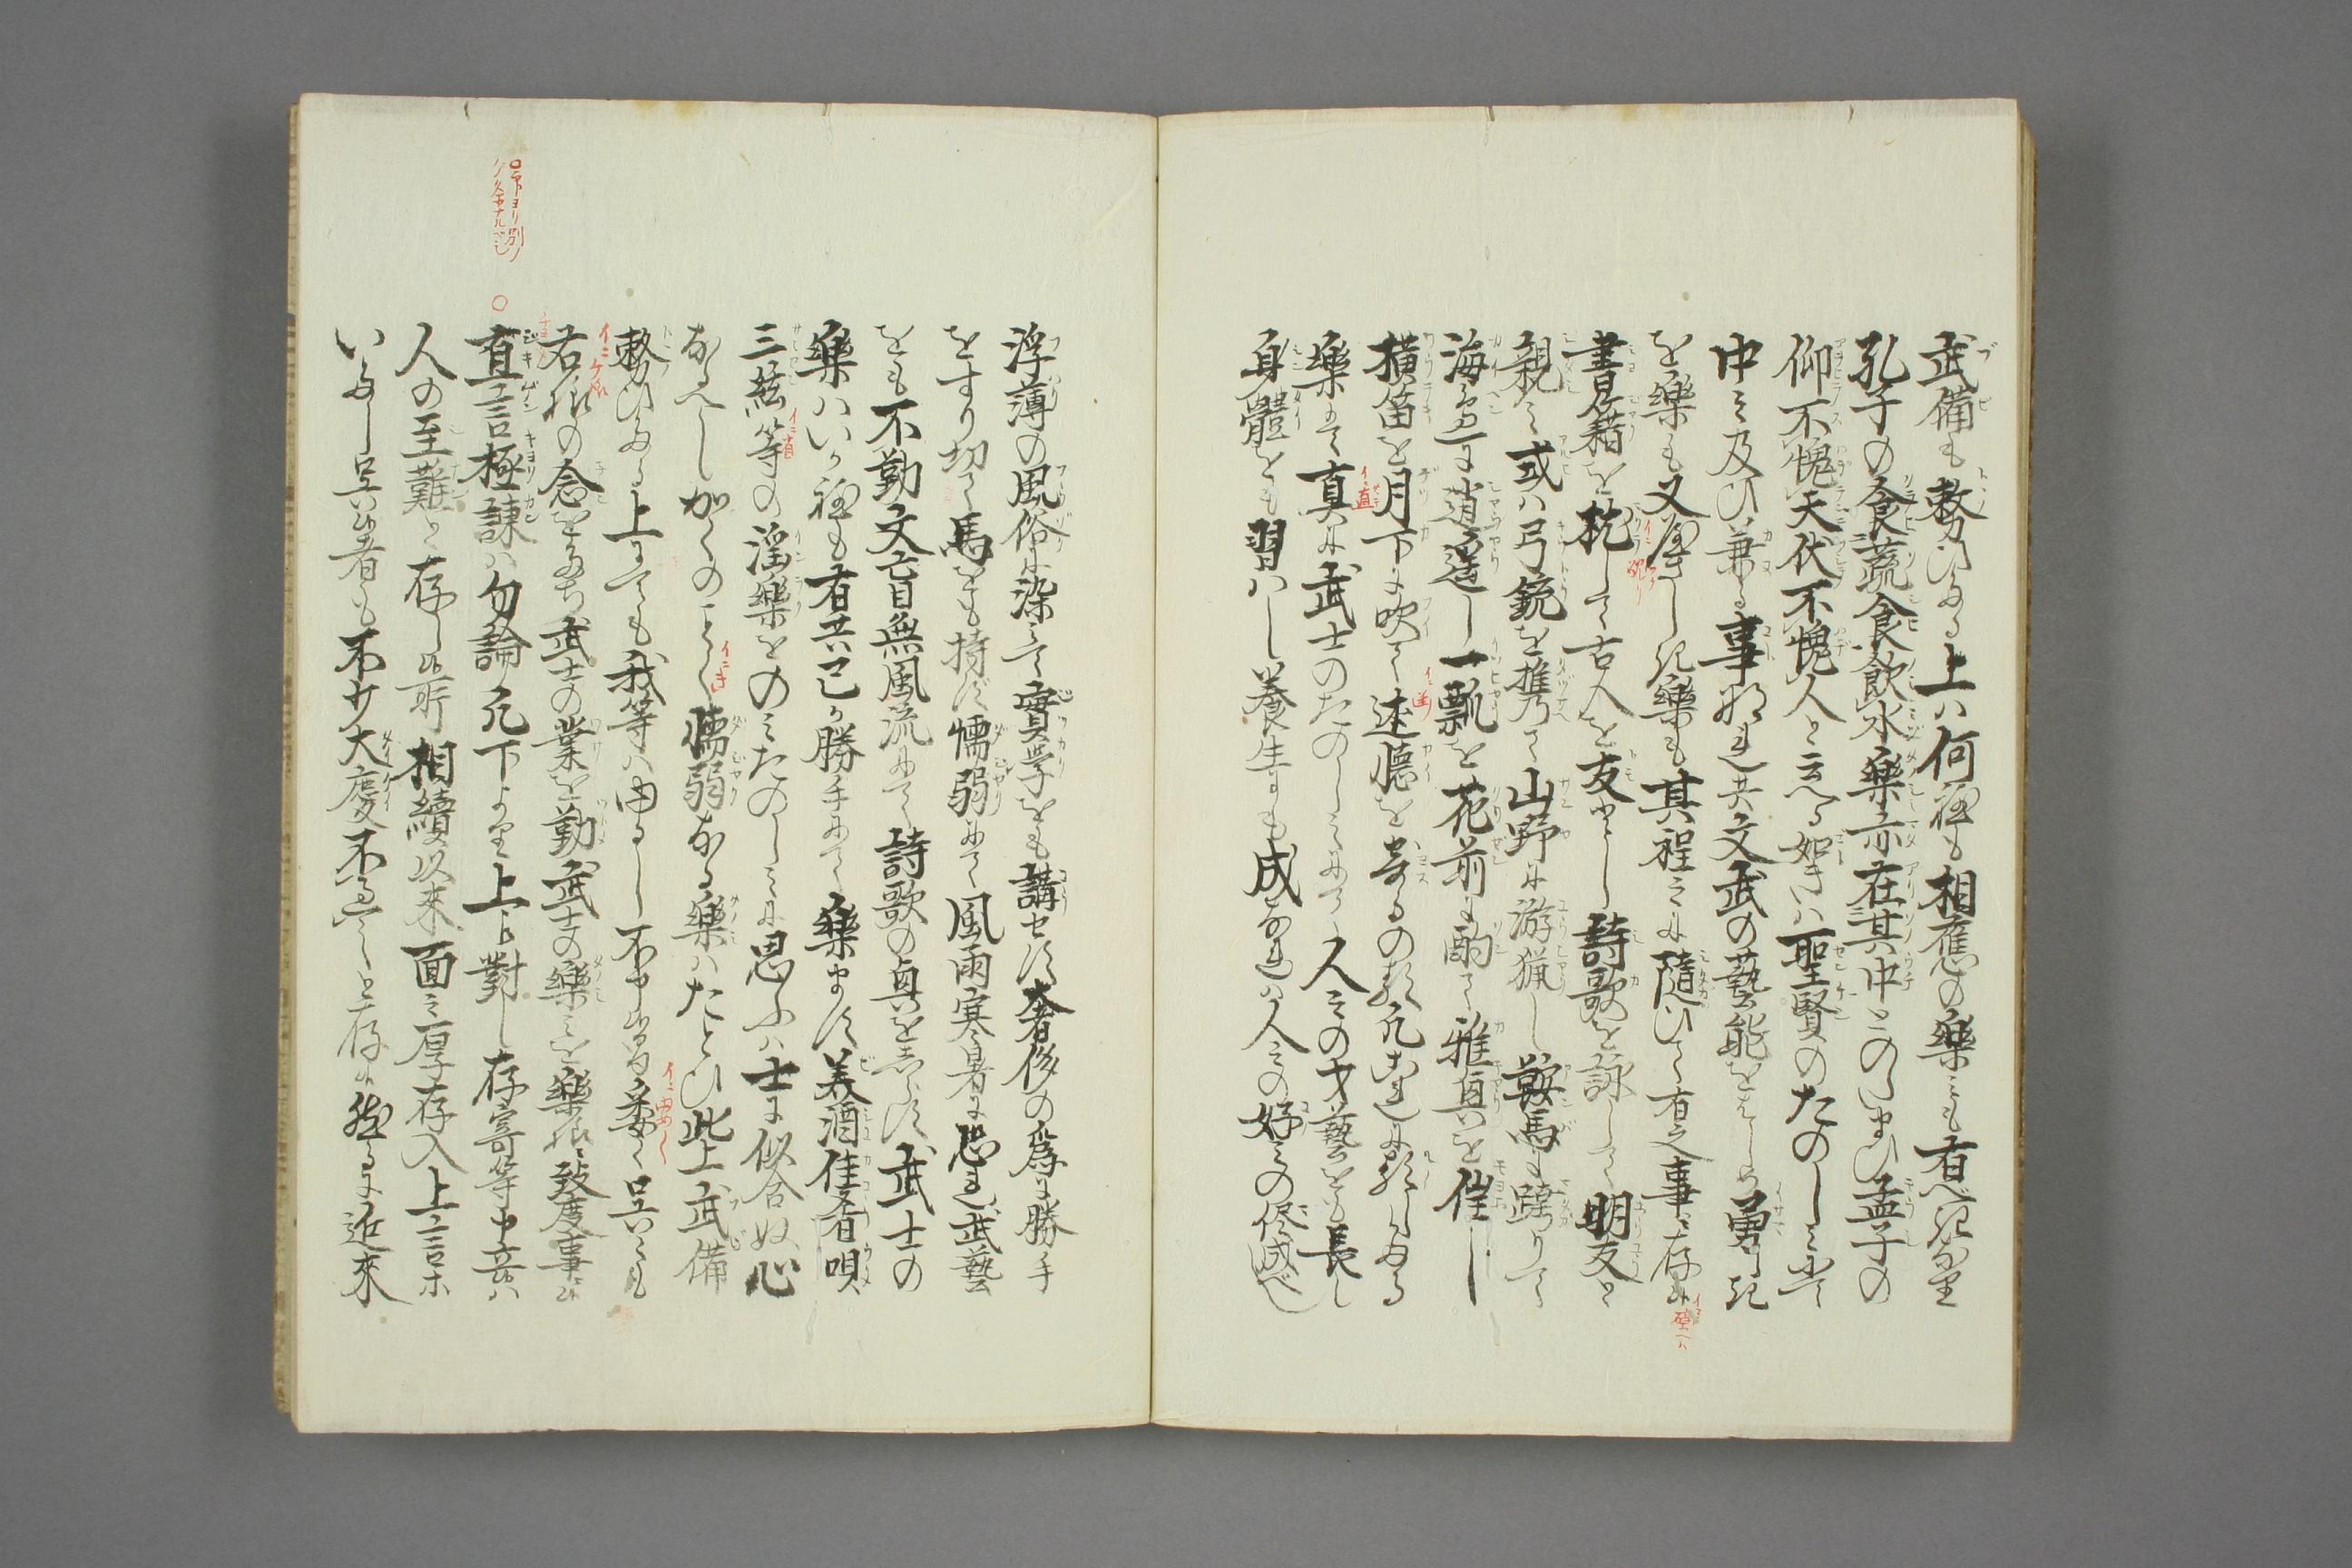 武備も整ひぬる上ハ何程も相應の樂ミも有べきなり
孔子の食蔬食飲水樂亦在其中とのいまひ孟子の
仰不愧天伏不愧人と云へる如きハ聖賢のたのしミにて
中々及ひ兼る事なれ共文武の藝能をはしめ勇しき
を樂も又優しき樂も其程々に隨ひて有之事と存候
書籍を枕して古人を友とし詩歌を詠して明友と
親ミ或ハ弓銃を携て山野に游猟し鞍馬に跨りて
海邉に逍遥し一瓢を花前に酌て雅興を催し
横笛を月下に吹て述懐を寄るの類凡これに類しぬる
樂にて真に武士のたのしミにて人々の才藝をも長し
身體をも習ハし養生にも成なれハ人々の好ミの侭成べし
浮薄の風俗に染ミて實学をも講せす奢侈の為に勝手
をすり切て馬をも持す懦弱にて風雨寒暑に恐れ武藝
をも不勤文盲無風流にて詩歌の興を志らす武士の
樂ハいか程も有共己か勝手にて樂ます美酒佳肴唄
三絃等の淫樂をのミたのしミに思ふハ士に似合ぬ心
なるへしかくのことく懦弱なる樂ハたとひ此上武備
整ひぬる上にても我等ハゆるし不申候間委く呉々も
右様の念をたち武士の業を勤武士の樂ミを樂様致度事に候
直言極諫ハ勿論凡下より上に對し存寄等申立ハ
人の至難と存し候所相續以来面々厚存入上言ホ
いたし呉候者も不少大慶不過之と存候然るに近来
口下ヨリ別ノ